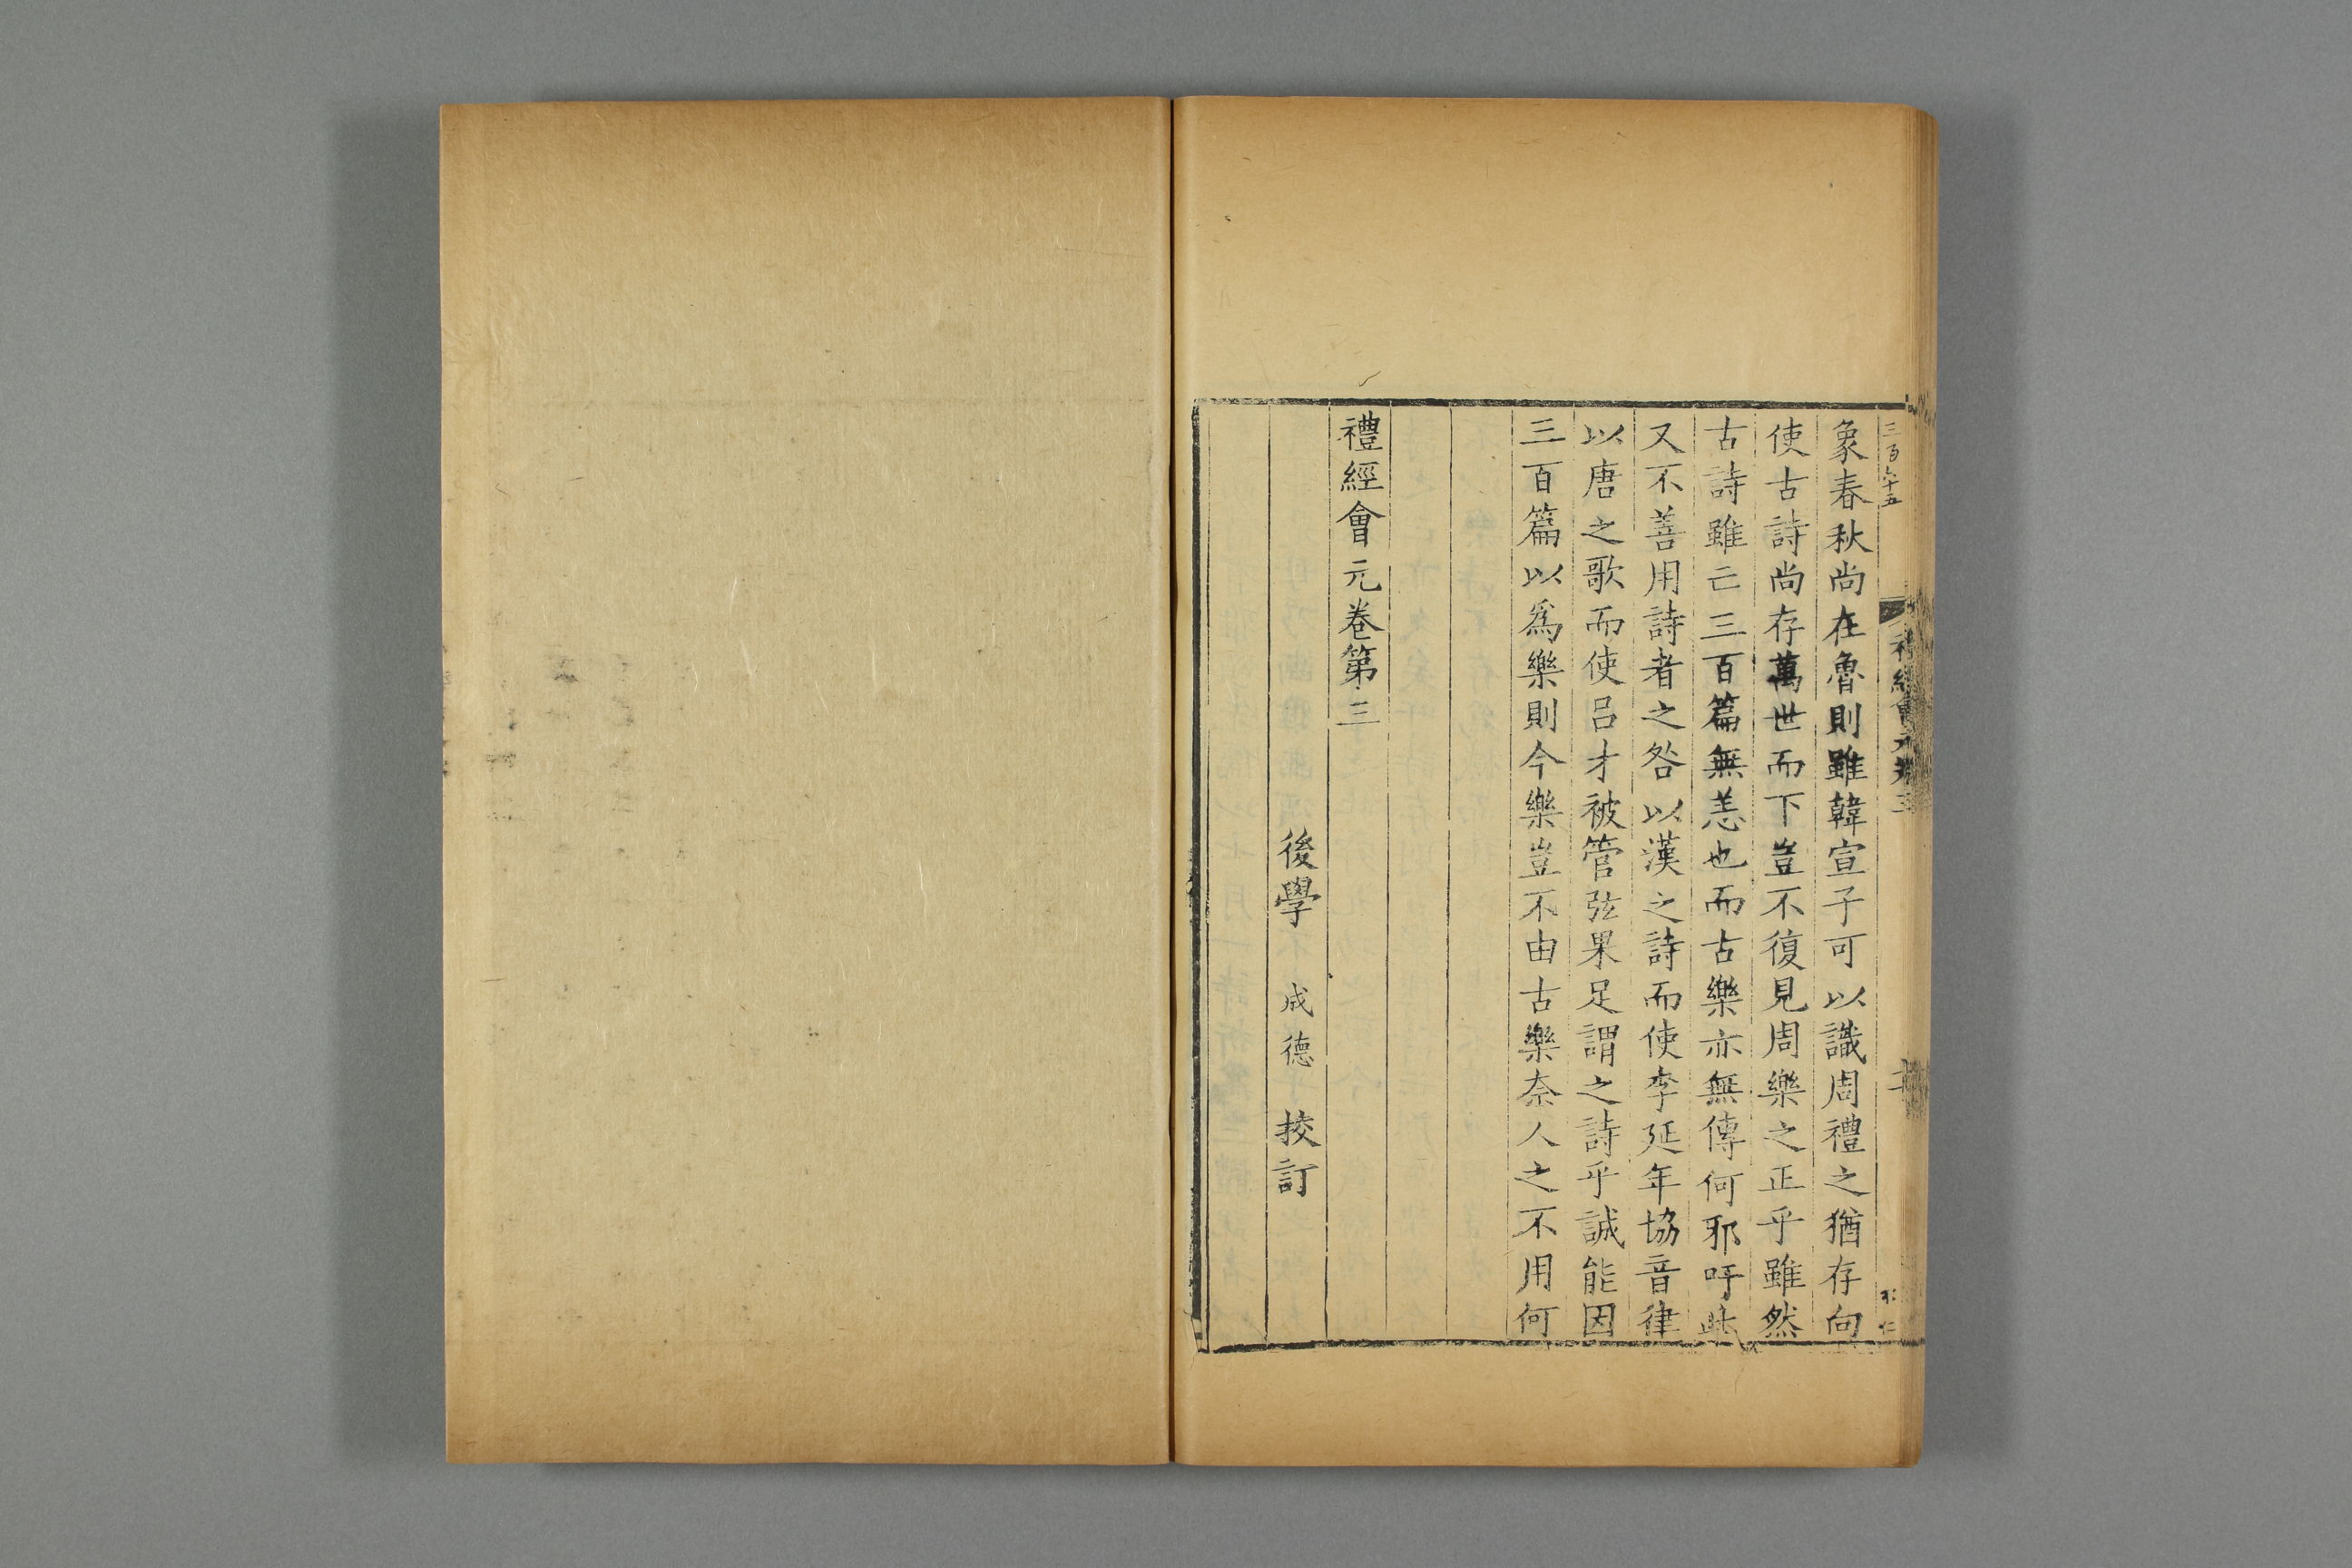 三百六十五
象春秋尚在魯則雖韓宣子可以識周禮之猶存向
使古詩尚存萬世而下豈不復見周樂之正乎雖然
古詩雖亡三百篇無恙也而古樂亦無傳何邪吁此
又不善用詩者之咎以漢之詩而使李延年協音律
以唐之歌而使呂才被管弦果足謂之詩乎誠能因
三百篇以爲樂則今樂豈不由古樂奈人之不用何
禮經會元卷第三
後學 成德 挍訂